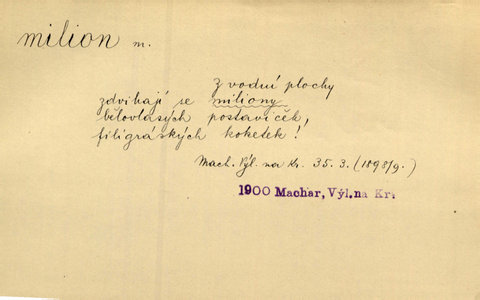 milion m.
Z vodní plochy
zdvihají se miliony
bělovlasých postaviček,
filigráských koketek!
Mach. Výl. na Kr. 35. 3. (1898/9.)
1900 Machar, Výl. na Kr.